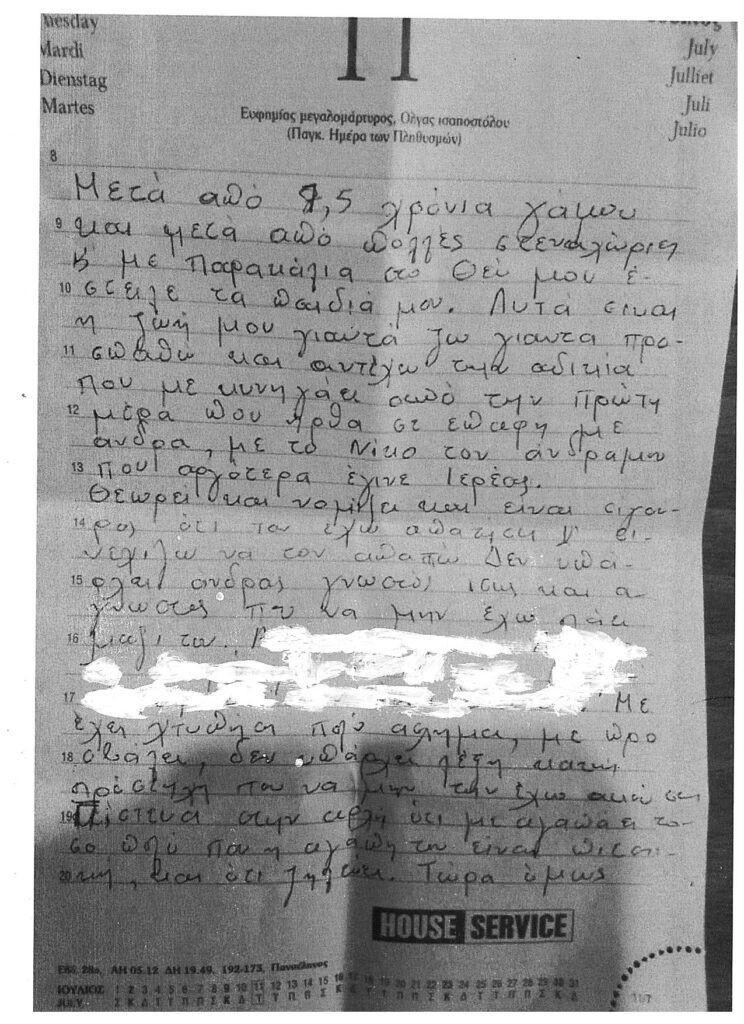 Tuesday
Mardi
Dienstag
Martes
11
July
Julliet
Juli
Julio
Ευφημίας μεγαλομάρτυρος, Όλγας ισαποστόλου
(Παγκ. Ημέρα των Πληθυσμών)
8
Μετά από 7,5 χρόνια γάμου
9 και μετά από πολλές στεναχώριες
κ' με παρακάλια στο Θεό μου έ-
10 στειλε τα παιδιά μου. Αυτά ειναι
η ζωή μου γιαυτά ζω γιαυτα προ-
11 σπαθώ και αντέχω την αδικία
που με κυνηγάει από την πρώτη
12 μέρα που ήρθα σε επαφή με
άνδρα, με το Νίκο τον άνδραμου
13 που αργότερα έγινε Ιερέας.
Θεωρεί και νομίζει και είναι σίγου-
14 ρος ότι τον έχω απατησει κ' συ-
νεχίζω να τον απατώ Δεν υπά-
15 ρχει άνδρας γνωστός ίσως και α-
γνωστος που να μην έχω πάει
16 μαζί του.
17 Με
έχει χτυπήσει πολύ άσχημα, με προ
18 σβάλει, δεν υπάρχει λέξη κακη
πρόστυχη που να μην την έχω ακούσει
19 Πίστευα στην αρχή ότι με αγαπάει το-
σο πολύ που η αγάπη του είναι
20 και ότι ζηλεύει. Τώρα όμως
HOUSE SERVICE
Εβδ. 28α, ΑΗ 05.12 ΔΗ 19.49, 192-173, Πανσέληνος
ΙΟΥΛΙΟΣ 1 2 3 4 5 6 7 8 9 10 11 12 13 14 15 16 17 18 19 20 21 22 23 24 25 26 27 28 29 30 31
JULY Σ Κ Δ Τ Τ Π Π Σ Κ Δ Τ Τ Π Π Σ Κ Δ Τ Τ Π Π Σ Κ Δ Τ Τ Π Π Σ Κ Δ
11/7